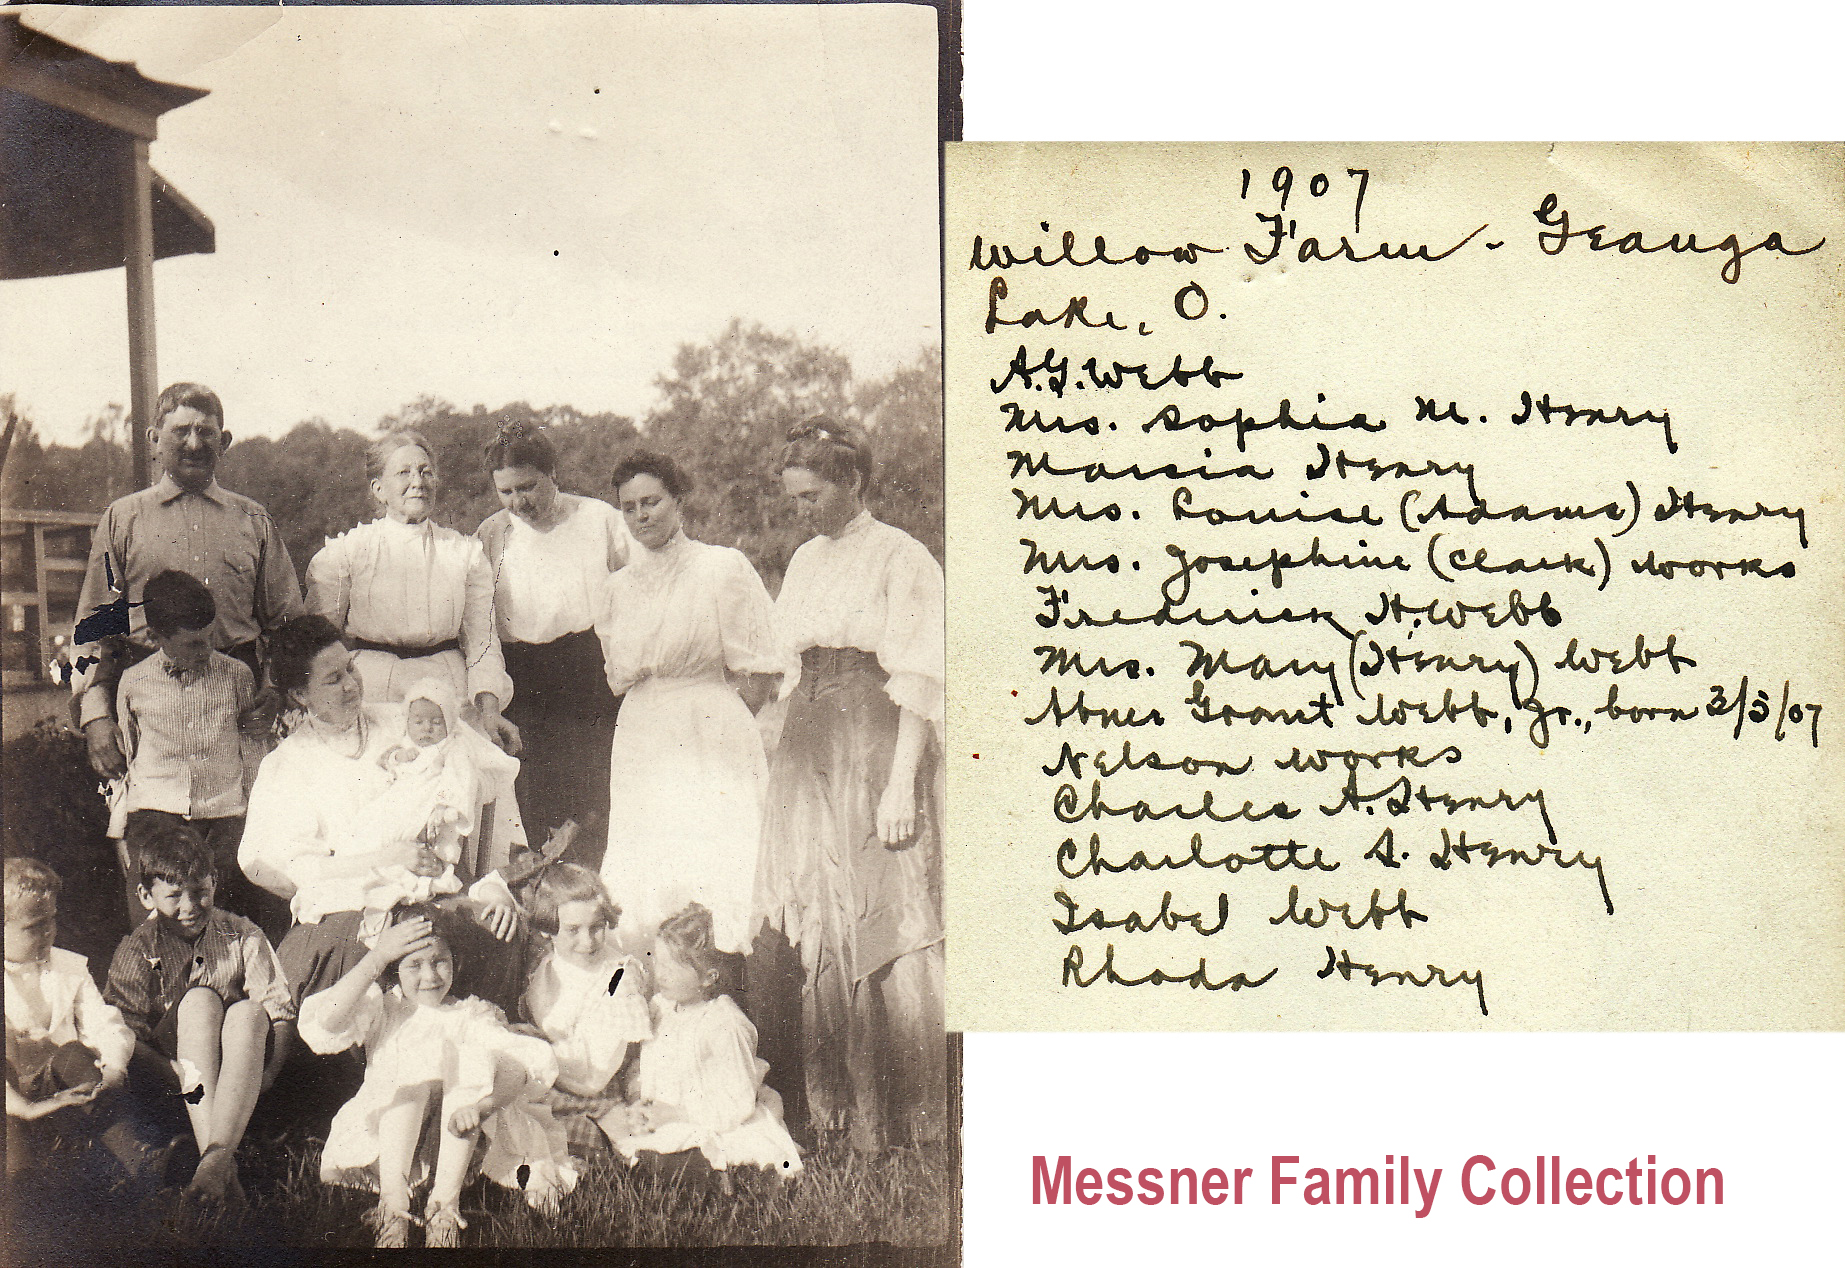 1907
Willow Farm - Geauga
Lake, O.
A.G. Webb
Mrs. Sophia M. Henry
Marcia Henry
Mrs. Louise (Adams) Henry
Mrs. Josephine (Clark) Works
Frederick H. Webb
Mrs. Mary (Henry) Webb
Abner Grant Webb, Jr., born 3/3/07
Nelson Works
Charles A. Henry
Charlotte A. Henry
Isabel Webb
Rhoda Henry
Messner Family Collection